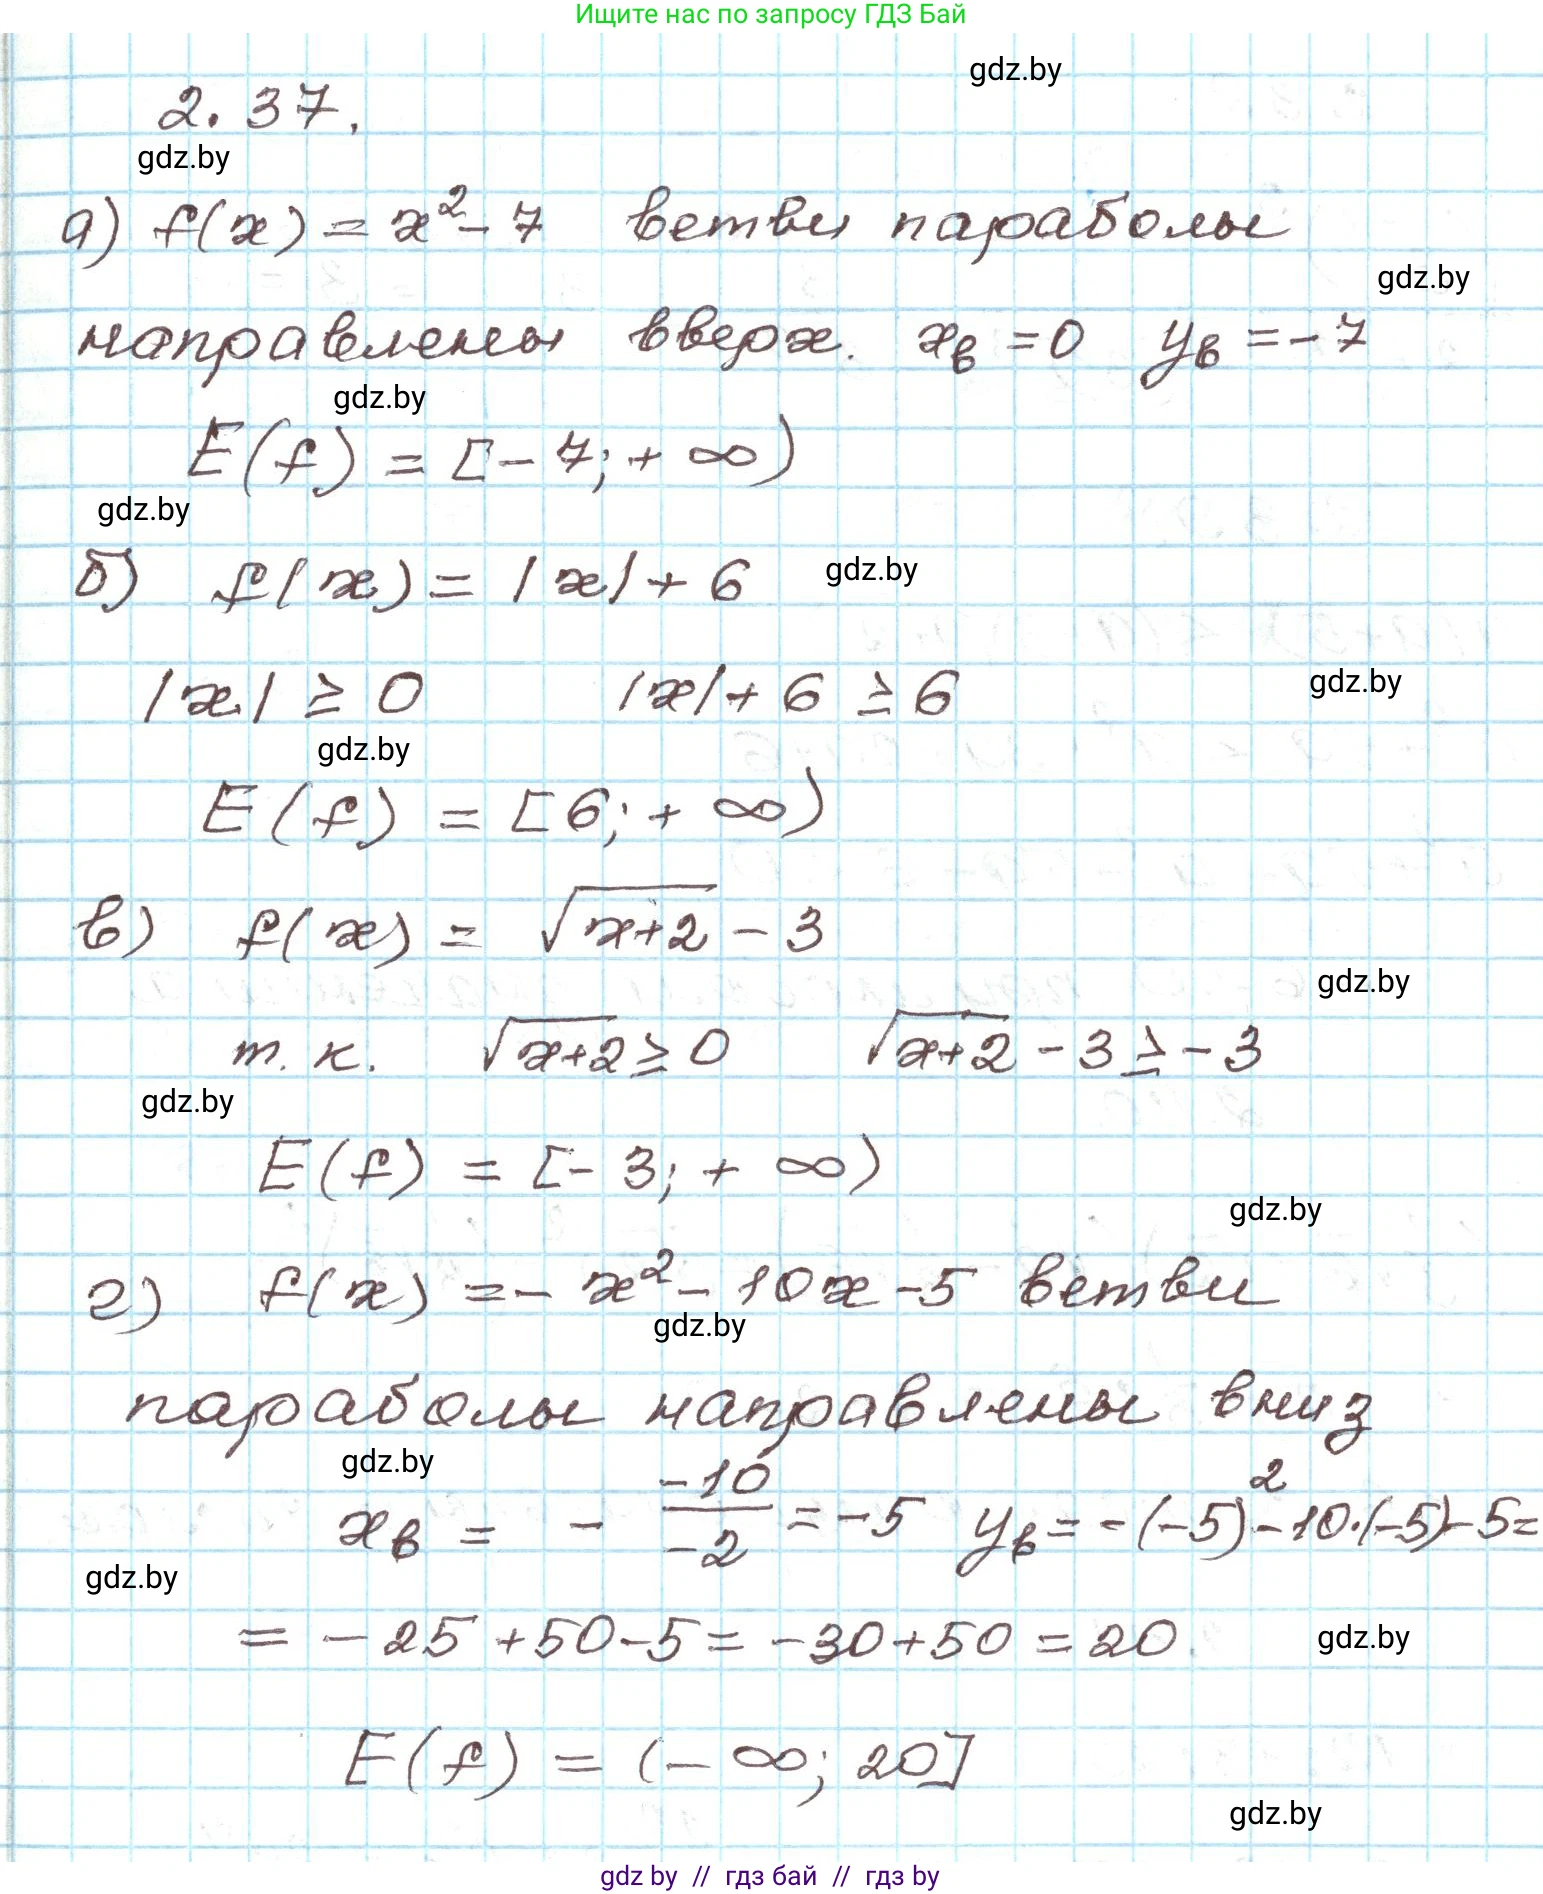 Ищите нас по запросу ГДЗ Бай
gdz.by
2.37.
gdz.by
а) f(x) = x² - 7 ветви параболы
gdz.by
направлены вверх. xв = 0 yв = -7
gdz.by
E(f) = [-7; +∞)
gdz.by
б) f(x) = |x| + 6 gdz.by
|x| ≥ 0 |x| + 6 ≥ 6 gdz.by
gdz.by
E(f) = [6; +∞)
в) f(x) = √(x+2) - 3
gdz.by
т. к. √(x+2) ≥ 0 √(x+2) - 3 ≥ -3
gdz.by
E(f) = [-3; +∞)
gdz.by
г) f(x) = -x² - 10x - 5 ветви
gdz.by
параболы направлены вниз
gdz.by
xв = - -10/-2 = -5 yв = -(-5)² - 10·(-5) - 5 =
gdz.by
= -25 + 50 - 5 = -30 + 50 = 20. gdz.by
E(f) = (-∞; 20]
gdz.by
gdz by // гдз бай // гдз by